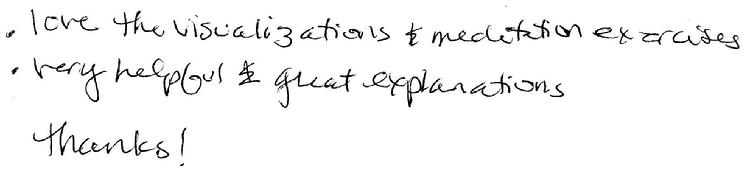 • love the visualizations & meditation exercises
• very helpful & great explanations
thanks!